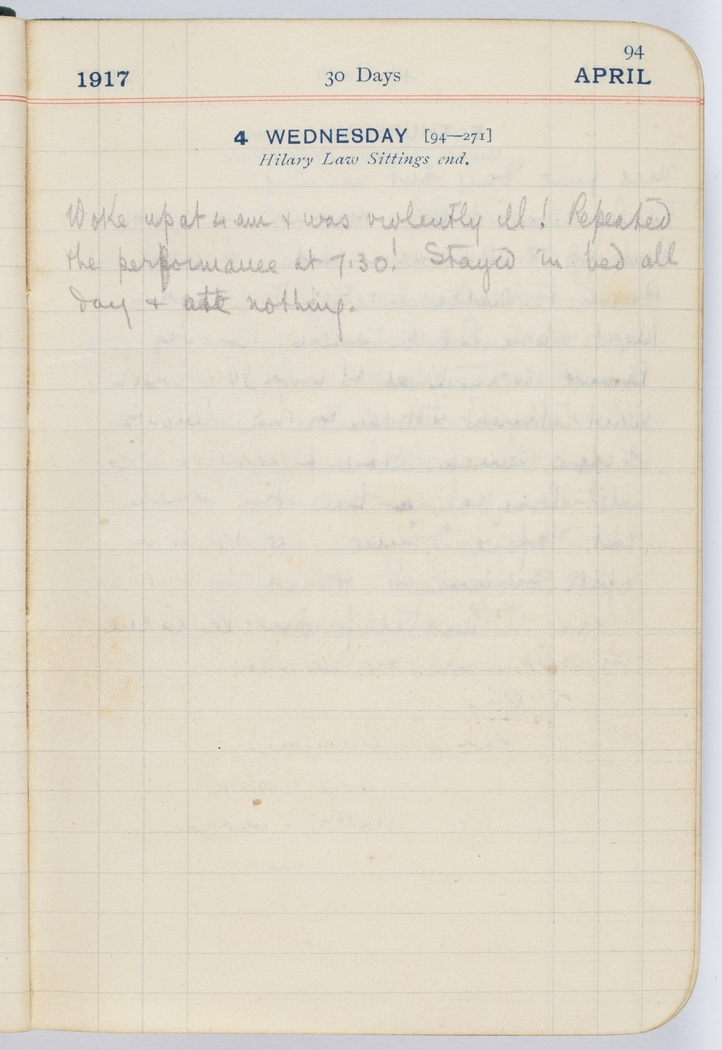 94
1917 30 Days APRIL
4 WEDNESDAY [94—271]
Hilary Law Sittings end.
Woke up at 4 am & was violently ill! Repeated
the performance at 7.30! Stayed in bed all
day & ate nothing.